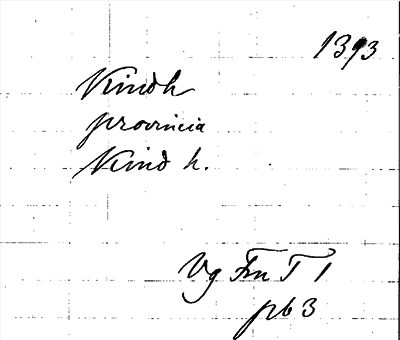 1393
Kindh
provincia
Kind h.
Vg Fru T 1
pb 3